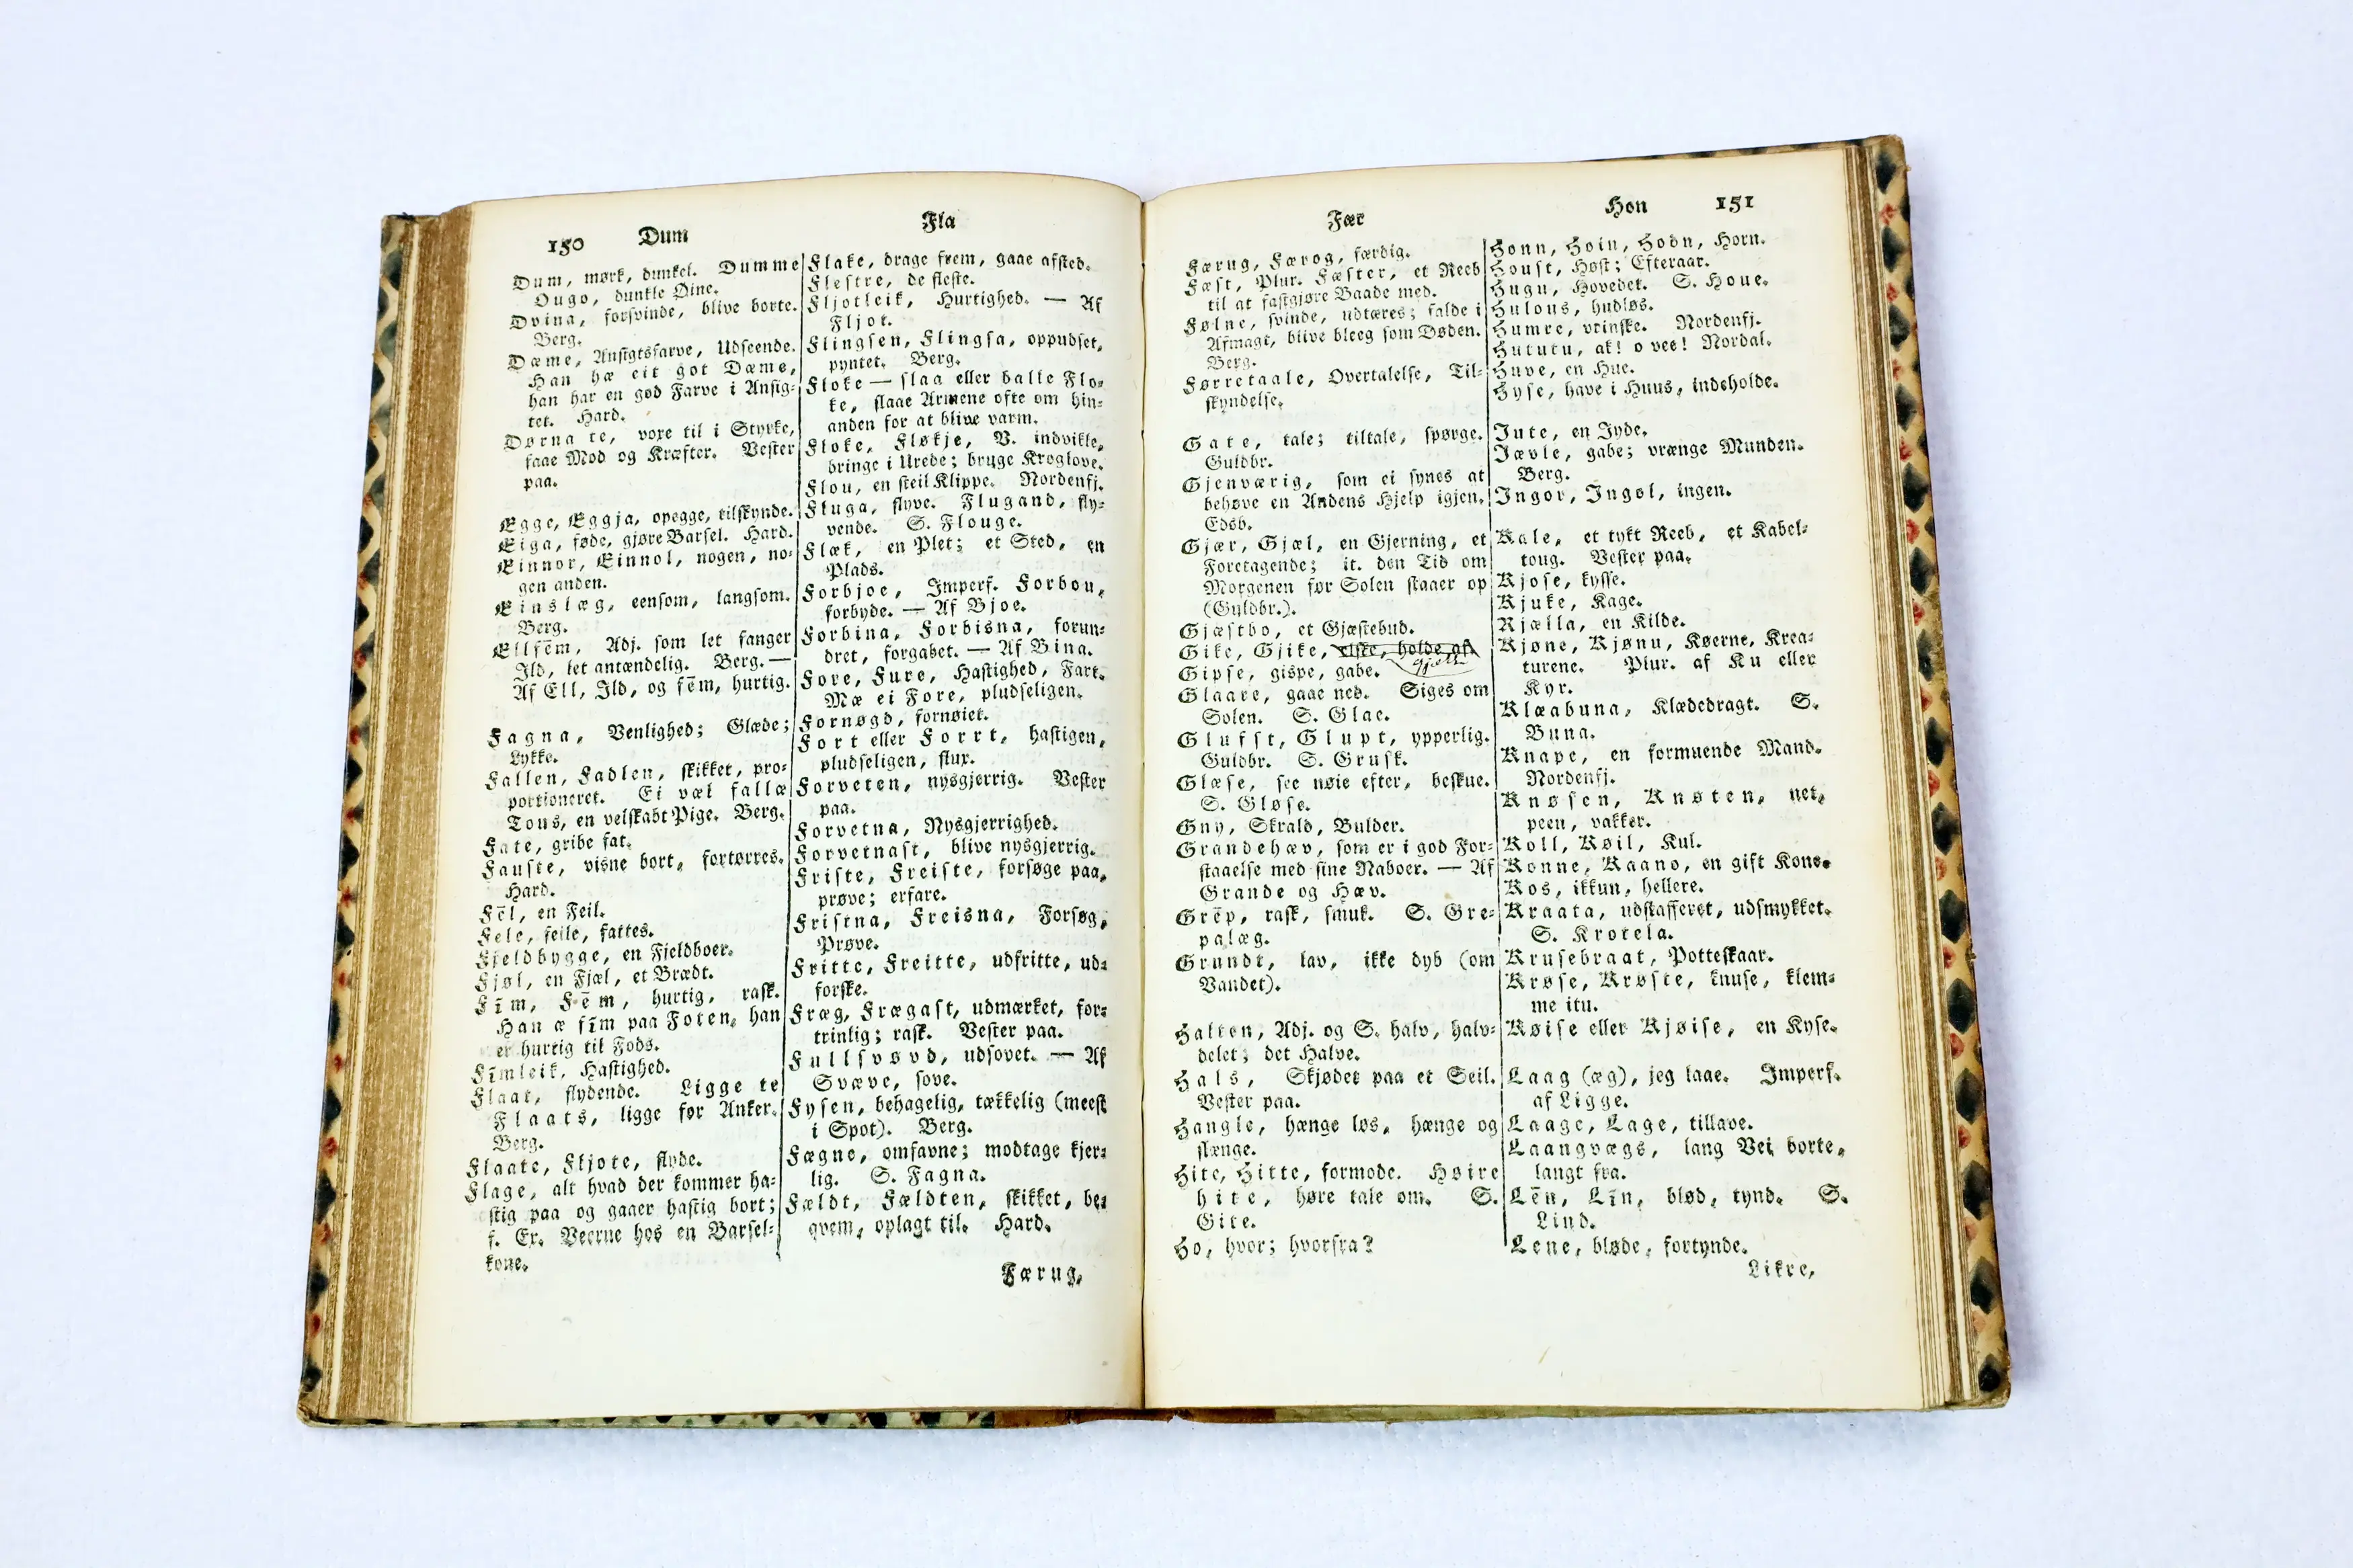 150 Dum Fla
Dum, mørk, dunkel. Dumme
Ougo, dunkle Øine.
Dvina, forsvinde, blive borte.
Berg.
Dæme, Ansigtsfarve, Udseende.
Han hæ eit got Dæme,
han har en god Farve i Ansig-
tet. Hard.
Dørna te, voxe til i Styrke,
faae Mod og Kræfter. Vester
paa.
Egge, Eggja, opegge, tilskynde.
Eiga, føde, gjøre Barsel. Hard.
Einnor, Einnol, nogen, no-
gen anden.
Einslæg, eensom, langsom.
Berg.
Ellfēm, Adj. som let fanger
Ild, let antændelig. Berg. —
Af Ell, Ild, og fēm, hurtig.
Fagna, Venlighed; Glæde;
Lykke.
Fallen, Fadlen, skikket, pro-
portioneret. Ei væl fallæ
Tous, en velskabt Pige. Berg.
Fate, gribe fat.
Fauste, visne bort, fortørres.
Hard.
Fēl, en Feil.
Fele, feile, fattes.
Fjeldbygge, en Fjeldboer.
Fjøl, en Fjæl, et Brædt.
Fīm, Fēm, hurtig, rask.
Han æ fīm paa Foten, han
er hurtig til Fods.
Fīmleik, Hastighed.
Flaat, flydende. Ligge te
Flaats, ligge for Anker.
Berg.
Flaate, Fljote, flyde.
Flage, alt hvad der kommer ha-
stig paa og gaaer hastig bort;
f. Ex. Veerne hos en Barsel-
kone.
Flake, drage frem, gaae afsted.
Flestre, de fleste.
Fljotleik, Hurtighed. — Af
Fljot.
Flingsen, Flingsa, oppudset,
pyntet. Berg.
Floke — slaa eller balle Flo-
ke, slaae Armene ofte om hin-
anden for at blive varm.
Floke, Fløkje, V. indvikle,
bringe i Urede; bruge Kroglove.
Flou, en steil Klippe. Nordenfj.
Fluga, flyve. Flugand, fly-
vende. S. Flouge.
Flæk, en Plet; et Sted, en
Plads.
Forbjoe, Imperf. Forbou,
forbyde. — Af Bjoe.
Forbina, Forbisna, forun-
dret, forgabet. — Af Bina.
Fore, Fure, Hastighed, Fart.
Mæ ei Fore, pludseligen.
Fornøgd, fornøiet.
Fort eller Forrt, hastigen,
pludseligen, flux.
Forveten, nysgjerrig. Vester
paa.
Forvetna, Nysgjerrighed.
Forvetnast, blive nysgjerrig.
Friste, Freiste, forsøge paa,
prøve; erfare.
Fristna, Freisna, Forsøg,
Prøve.
Fritte, Freitte, udfritte, ud-
forske.
Fræg, Frægast, udmærket, for-
trinlig; rask. Vester paa.
Fullsvøvd, udsovet. — Af
Svæve, sove.
Fysen, behagelig, tækkelig (meest
i Spot). Berg.
Fægne, omfavne; modtage kjer-
lig. S. Fagna.
Fældt, Fældten, skikket, be-
qvem, oplagt til. Hard.
Færug,
Fær Hon 151
Færug, Færog, færdig.
Fæst, Plur. Fæster, et Reeb
til at fastgjøre Baade med.
Følne, svinde, udtæres; falde i
Afmagt, blive bleeg som Døden.
Berg.
Førretaale, Overtalelse, Til-
skyndelse.
Gate, tale; tiltale, spørge.
Guldbr.
Gjenværig, som ei synes at
behøve en Andens Hjelp igjen.
Edsb.
Gjær, Gjæl, en Gjerning, et
Foretagende; it. den Tid om
Morgenen før Solen staaer op
(Guldbr.).
Gjæstbo, et Gjæstebud.
Gike, Gjike, elske, holde af.
gjett
Gipse, gispe, gabe.
Glaare, gaae ned. Siges om
Solen. S. Glae.
Glufst, Glupt, ypperlig.
Guldbr. S. Grusk.
Glæse, see nøie efter, beskue.
S. Gløse.
Gny, Skrald, Bulder.
Grandehæv, som er i god For-
staaelse med sine Naboer. — Af
Grande og Hæv.
Grēp, rask, smuk. S. Gre-
palæg.
Grundt, lav, ikke dyb (om
Vandet).
Halten, Adj. og S. halv, halv-
delet; det Halve.
Hals, Skjødet paa et Seil.
Vester paa.
Hangle, hænge løs, hænge og
slænge.
Hite, Hitte, formode. Høire
hite, høre tale om. S.
Gite.
Ho, hvor; hvorfra?
Honn, Hoin, Hodn, Horn.
Houst, Høst; Efteraar.
Hugu, Hovedet. S. Houe.
Hulous, hudløs.
Humre, vrinske. Nordenfj.
Hututu, ak! o vee! Nordal.
Huve, en Hue.
Hyse, have i Huus, indeholde.
Jute, en Jyde.
Jævle, gabe; vrænge Munden.
Berg.
Ingor, Ingol, ingen.
Kale, et tykt Reeb, et Kabel-
toug. Vester paa.
Kjose, kysse.
Kjuke, Kage.
Kjælla, en Kilde.
Kjøne, Kjønu, Køerne, Krea-
turene. Plur. af Ku eller
Kyr.
Klæabuna, Klædedragt. S.
Buna.
Knape, en formuende Mand.
Nordenfj.
Knøsen, Knøten, net,
peen, vakker.
Koll, Køil, Kul.
Konne, Kaano, en gift Kone.
Kos, ikkun, hellere.
Kraata, udstafferet, udsmykket.
S. Krotela.
Krusebraat, Potteskaar.
Krøse, Krøste, knuse, klem-
me itu.
Køise eller Kjøise, en Kyse.
Laag (æg), jeg laae. Imperf.
af Ligge.
Laage, Lage, tillave.
Laangvægs, lang Vei borte,
langt fra.
Lēn, Līn, blød, tynd. S.
Lind.
Lene, bløde, fortynde.
Likre,